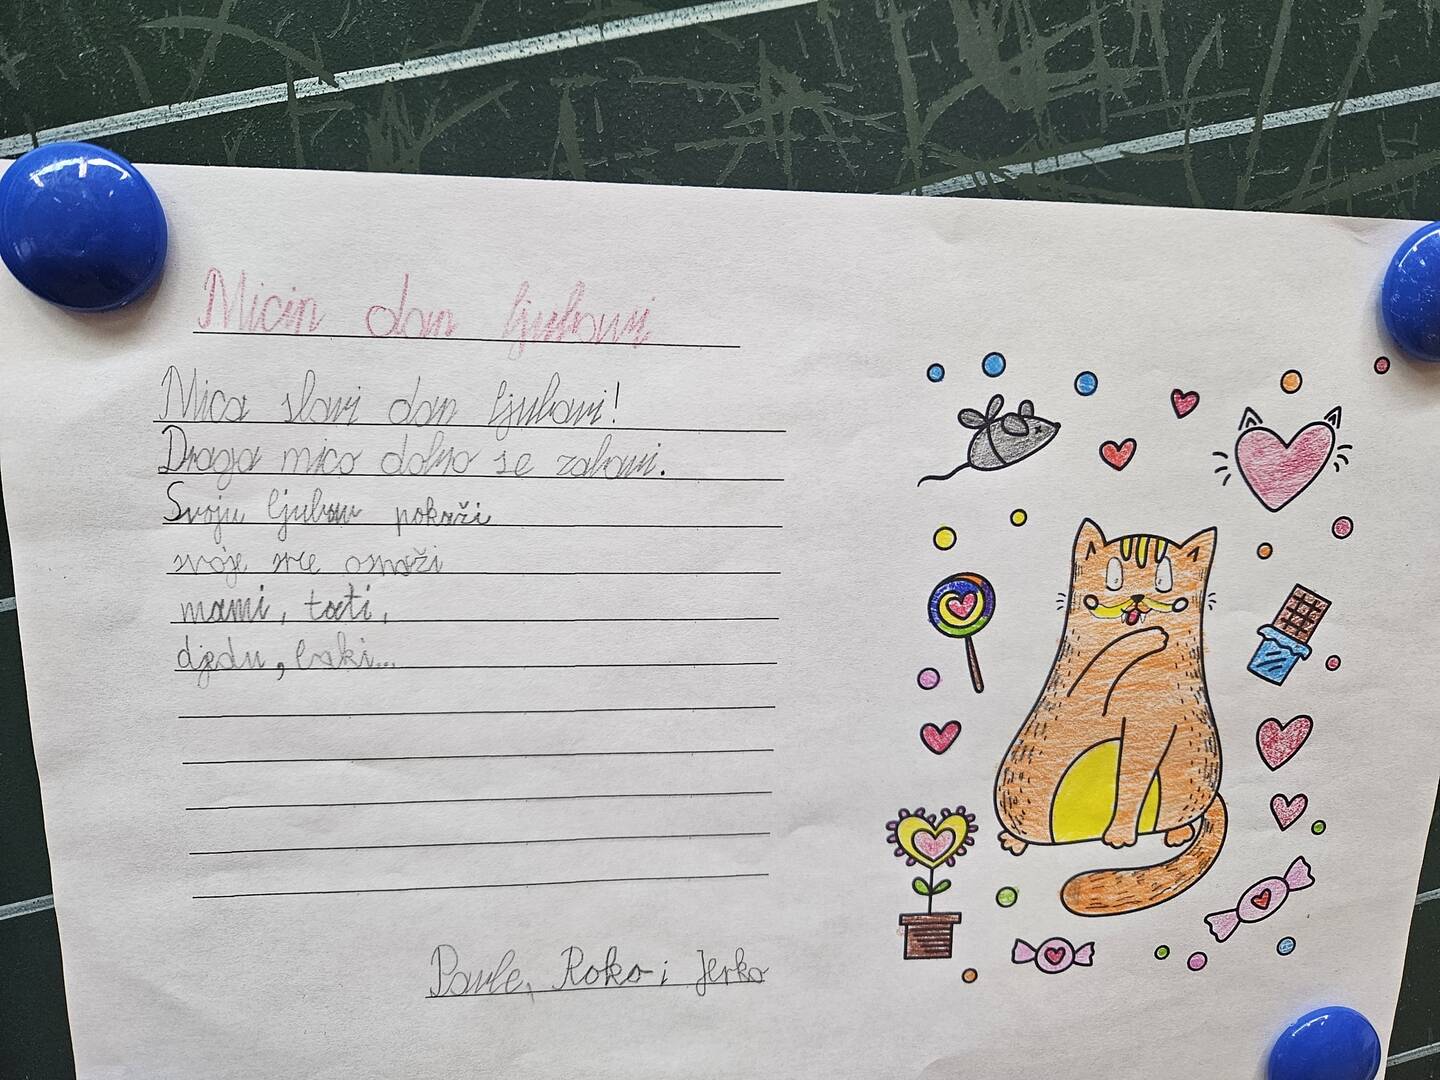 Micin dan ljubavi
Mica slavi dan ljubavi!
Draga mico dobro se zabavi.
Svoju ljubav pokaži
svoje srce osnaži
mami, tati,
djedu, baki...
Pavle, Roko i Jerko